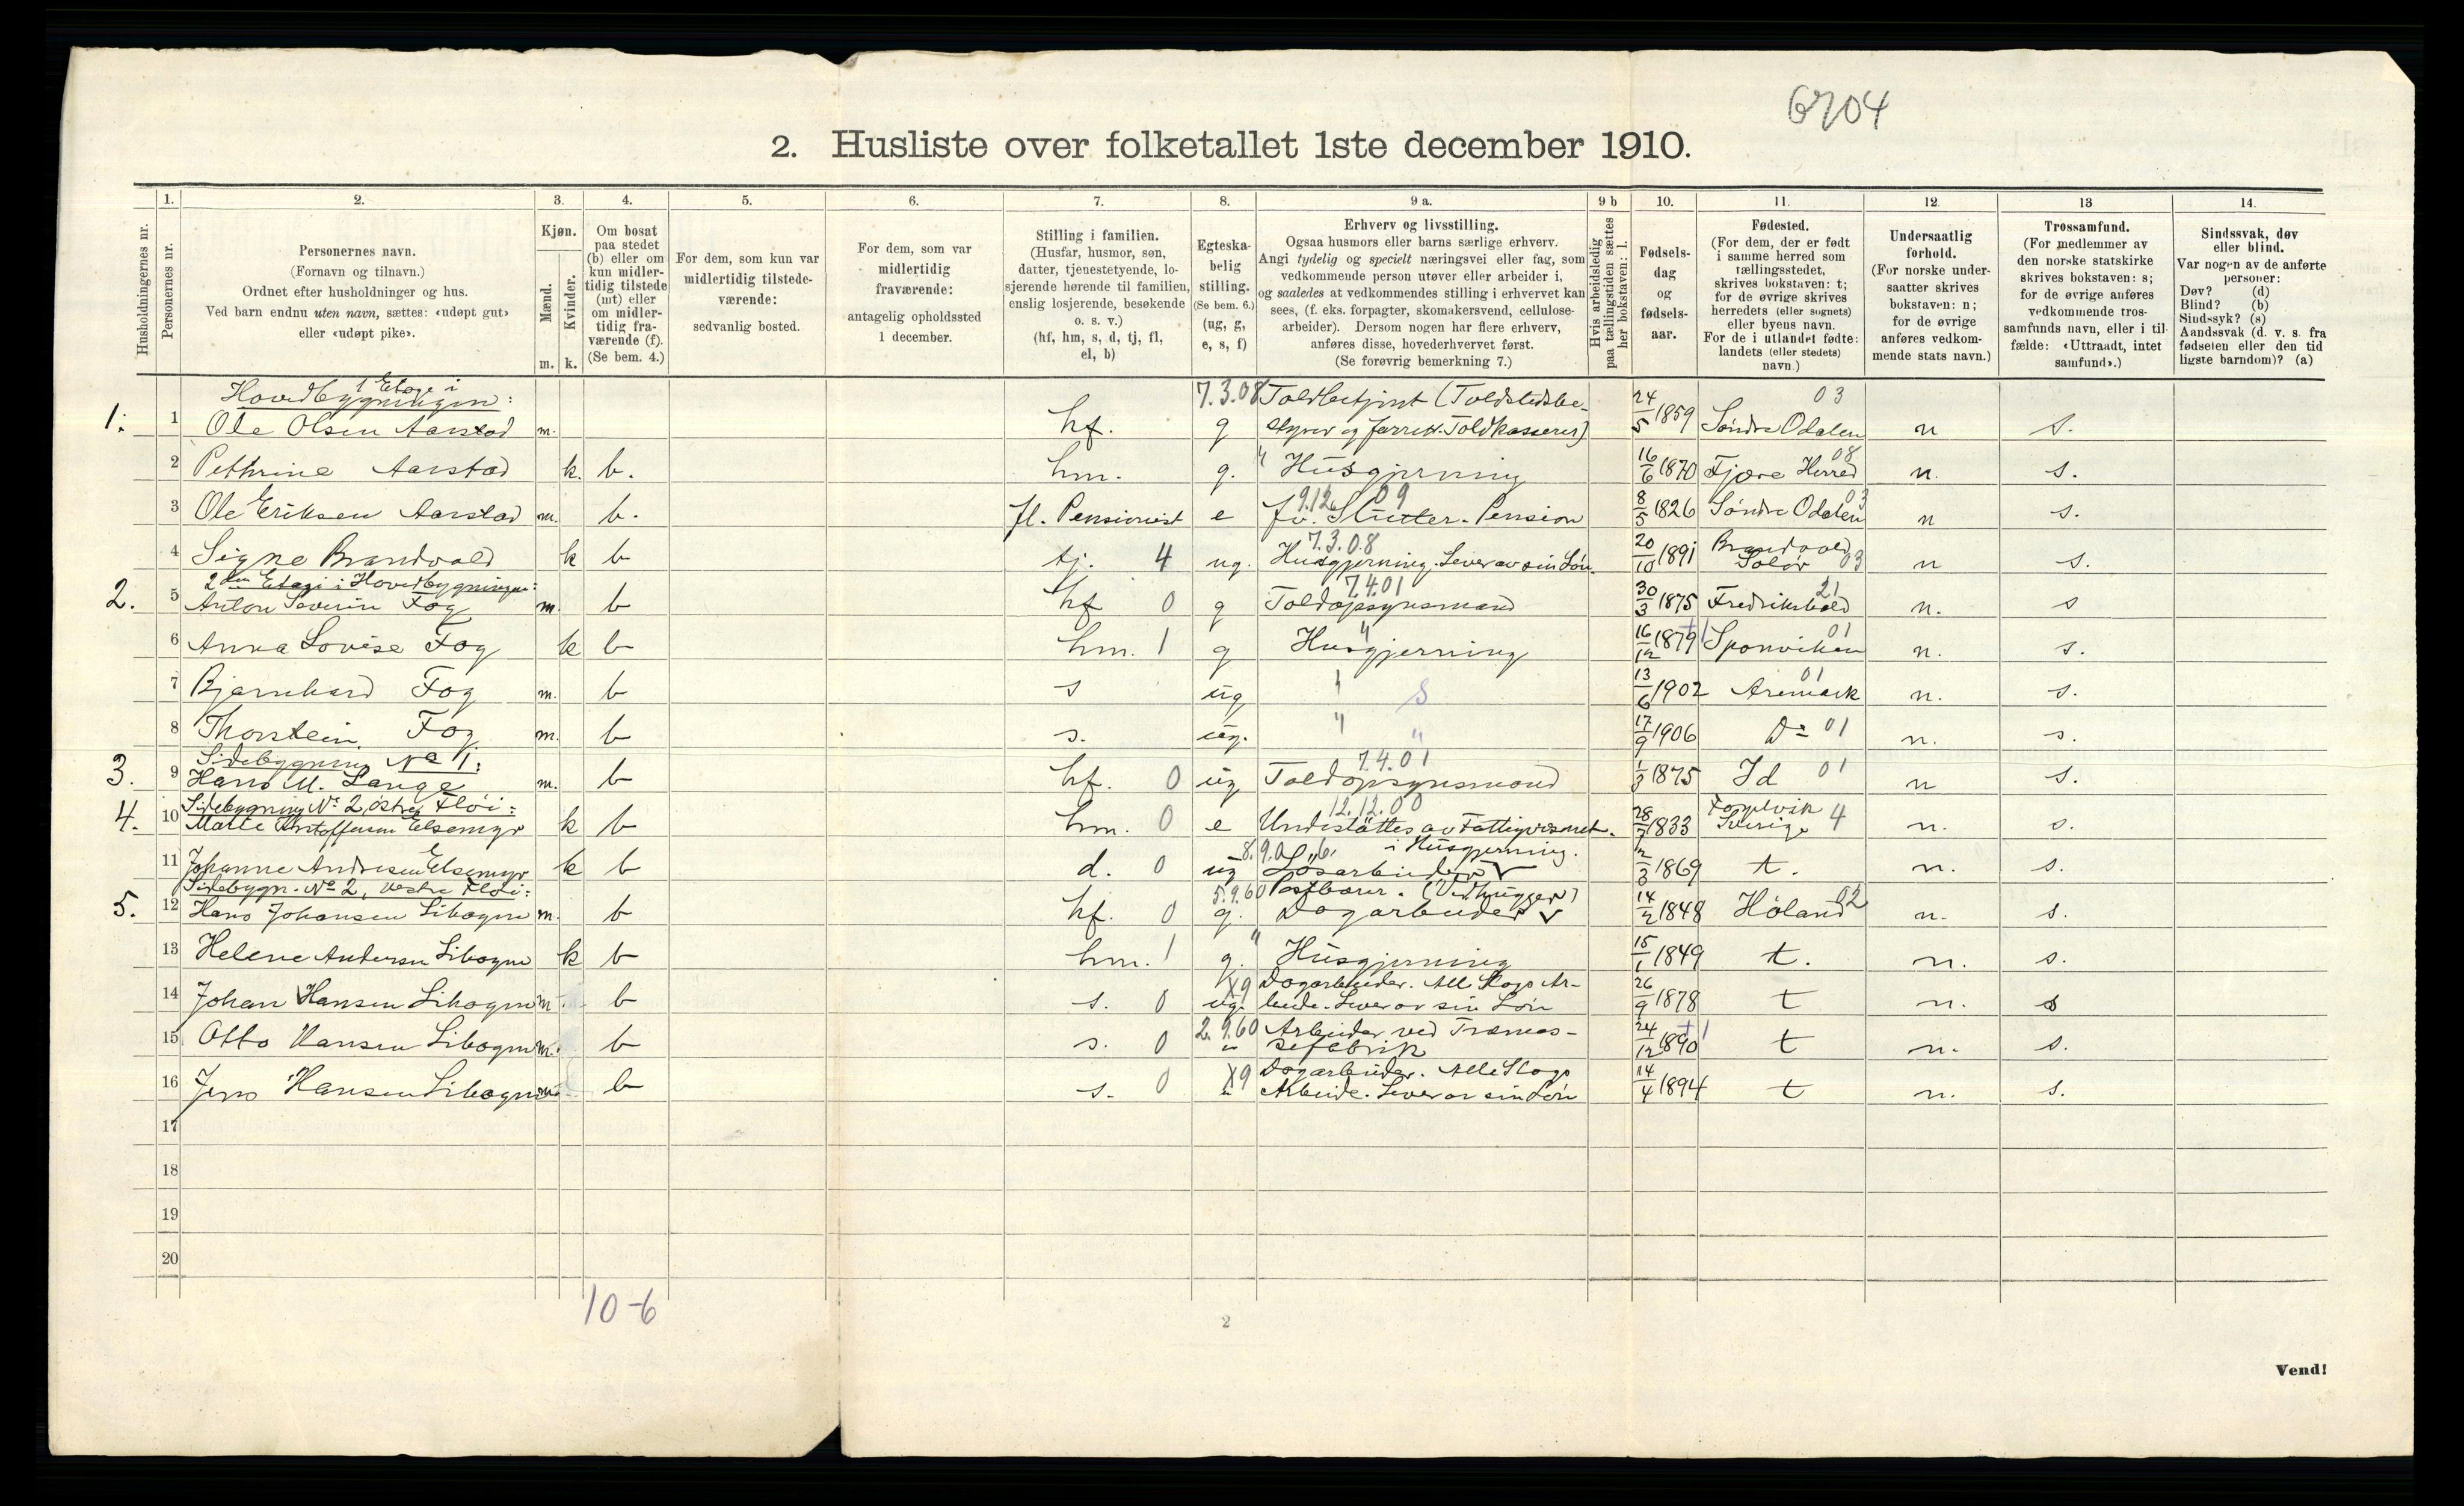 6704
2. Husliste over folketallet 1ste december 1910.
Husholdningernes nr.
1.
Personernes nr.
2.
Personernes navn.
(Fornavn og tilnavn.)
Ordnet efter husholdninger og hus.
Ved barn endnu uten navn, sættes: «udøpt gut»
eller «udøpt pike».
3.
Kjøn.
Mænd.
Kvinder.
m. k.
4.
Om bosat
paa stedet
(b) eller om
kun midler-
tidig tilstede
(mt) eller
om midler-
tidig fra-
værende (f).
(Se bem. 4.)
5.
For dem, som kun var
midlertidig tilstede-
værende:
sedvanlig bosted.
6.
For dem, som var
midlertidig
fraværende:
antagelig opholdssted
1 december.
7.
Stilling i familien.
(Husfar, husmor, søn,
datter, tjenestetyende, lo-
sjerende hørende til familien,
enslig losjerende, besøkende
o. s. v.)
(hf, hm, s, d, tj, fl,
el, b)
8.
Egteska-
belig
stilling.
(Se bem. 6.)
(ug, g,
e, s, f)
9 a.
Erhverv og livsstilling.
Ogsaa husmors eller barns særlige erhverv.
Angi tydelig og specielt næringsvei eller fag, som
vedkommende person utøver eller arbeider i,
og saaledes at vedkommendes stilling i erhvervet kan
sees, (f. eks. forpagter, skomakersvend, cellulose-
arbeider). Dersom nogen har flere erhverv,
anføres disse, hovederhvervet først.
(Se forøvrig bemerkning 7.)
9 b
Hvis arbeidsledig
paa tællingstiden sættes
her bokstaven: l.
10.
Fødsels-
dag
og
fødsels-
aar.
11.
Fødested.
(For dem, der er født
i samme herred som
tællingsstedet,
skrives bokstaven: t;
for de øvrige skrives
herredets (eller sognets)
eller byens navn.
For de i utlandet fødte:
landets (eller stedets)
navn.)
12.
Undersaatlig
forhold.
(For norske under-
saatter skrives
bokstaven: n;
for de øvrige
anføres vedkom-
mende stats navn.)
13
Trossamfund.
(For medlemmer av
den norske statskirke
skrives bokstaven: s;
for de øvrige anføres
vedkommende tros-
samfunds navn, eller i til-
fælde: «Uttraadt, intet
samfund».)
14.
Sindssvak, døv
eller blind.
Var nogen av de anførte
personer:
Døv? (d)
Blind? (b)
Sindssyk? (s)
Aandssvak (d. v. s. fra
fødselen eller den tid-
ligste barndom)? (a)
1 Etage i
Hovedbygningen:
7.3.08 Toldbetjent (Toldstedsbe- 03
1. 1 Ole Olsen Aarstad m. hf. g styrer og forrett. Toldkasserer) 24/5 1859 Søndre Odalen n s.
2 Pethrine Aarstad k. b. hm. g. " Husgjerning 16/6 1870 Fjære Herred 08 n. s.
9.12.09
3 Ole Eriksen Aarstad m. b. fl. Pensionist e fv. Slutter. Pension 8/5 1826 Søndre Odalen 03 n s.
7.3.08 Brandvold
4 Signe Brandvold k b tj. 4 ug. Husgjerning. Lever av sin Løn. 20/10 1891 Solør 03 n s.
2den Etage i Hovedbygningen: 7.4.01 21
2. 5 Anton Severin Fog m. b hf 0 g Toldopsynsmand 30/3 1875 Fredrikshald n. s
6 Anna Lovise Fog k b hm. 1 g " Husgjerning 16/12 1879 +1 Sponviken 01 n. s.
7 Bjarnhard Fog m. b s ug " S 13/6 1902 Aremark 01 n. s.
8 Thorstein Fog m. b s. ug. " " 17/9 1906 Do 01 n. s.
Sidebygning No 1: 7.4.01
3. 9 Hans M. Lange m. b hf. 0 ug Toldopsynsmand 1/3 1875 Id 01 n s.
Sidebygning No 2, østre Fløi: 12.12.00
4. 10 k b hm. 0 e Understøttes av Fattigvæsenet. 28/7 1833 Sverige 4 n. s.
i Husgjerning.
11 Johanne Andresen Elsemyr k b d. 0 ug Løsarbeider 1869 t. n. s.
Sidebygn. No 2, vestre Fløi: 5.9.60 Postbærer. (Vedhugger) 02
5. 12 Hans Johansen Libogne m. b hf. 0 g. Dagarbeider 14/2 1848 Høland n. s.
13 Helene Andersen Libogne k b hm. 1 g. " Husgjerning 15/1 1849 t. n. s.
X9 Dagarbeider. All Slags Ar-
14 Johan Hansen Libogne m b s. 0 ug. beide. Lever av sin Løn 26/9 1878 t n. s
2.9.60 Arbeider ved Træmas-
15 Otto Hansen Libogne m. b s. 0 " sefabrik 24/12 1890 +1 t n. s.
X9 Dagarbeider. Alle Slags
16 Jens Hansen Libogne m b s. 0 " Arbeide. Lever av sin Løn 14/4 1894 t n. s.
17
18
19
20
10-6
2
Vend!